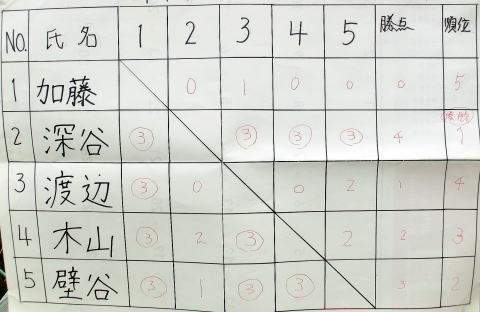 NO. 氏名 1 2 3 4 5 勝点 順位
1 加藤 0 1 0 0 0 5
2 深谷 3 3 3 3 4 優勝 1
3 渡辺 3 0 0 2 1 4
4 木山 3 2 3 2 2 3
5 壁谷 3 1 3 3 3 2